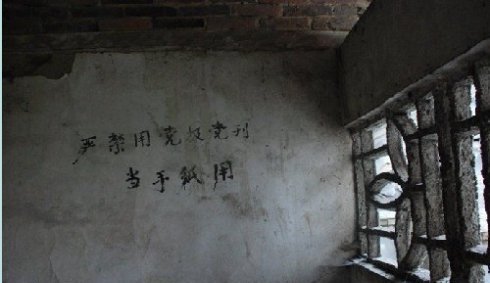 严禁用党报党刊
当手纸用